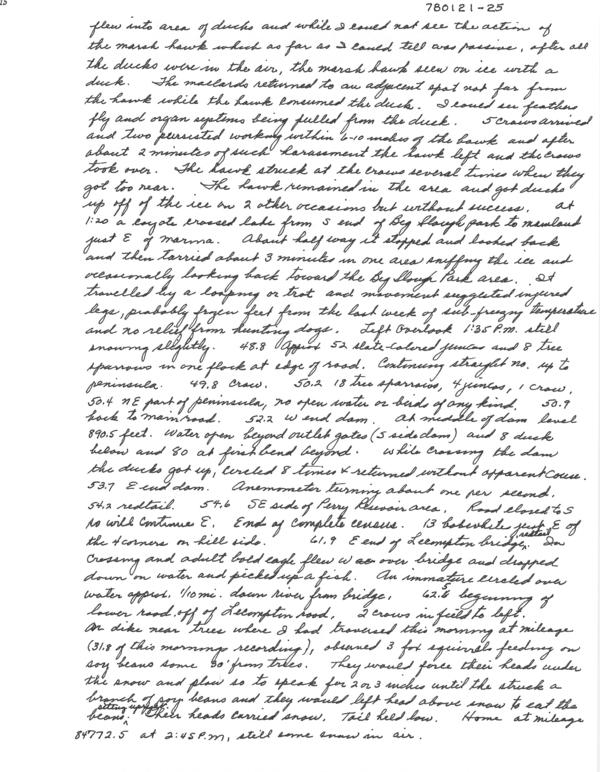 780121-25
flew into area of ducks and while I could not see the action of
the marsh hawk which as far as I could tell was passive, after all
the ducks were in the air, the marsh hawk seen on ice with a
duck. The mallards returned to an adjacent spot not far from
the hawk while the hawk consumed the duck. I could see feathers
fly and organ systems being pulled from the duck. 5 crows arrived
and two persisted working within 6-10 inches of the hawk and after
about 2 minutes of such harassment the hawk left and the crows
took over. The hawk struck at the crows several times when they
got too near. The hawk remained in the area and got ducks
up off of the ice on 2 other occasions but without success. At
1:20 a coyote crossed lake from S end of Big Slough park to mainland
just E of marina. About half way it stopped and looked back
and then tarried about 3 minutes in one area sniffing the ice and
occasionally looking back toward the Big Slough Park area. It
travelled by a loping or trot and movement suggested injured
legs, probably frozen feet from the last week of sub-freezing temperature
and no relief from hunting dogs. Left Overlook 1:35 P.M. still
snowing slightly. 48.8 Approx 52 slate-colored juncos and 8 tree
sparrows in one flock at edge of road. Continuing straight no. up to
peninsula. 49.8 Crow. 50.2 18 tree sparrows, 4 juncos, 1 crow,
50.4 NE part of peninsula, no open water or birds of any kind. 50.9
back to main road. 52.2 W end dam. At middle of dam level
890.5 feet. Water open beyond outlet gates (S side dam) and 8 duck
below and 80 at first bend beyond. While crossing the dam
the ducks got up, circled 8 times & returned without apparent cause.
53.7 E end dam. Anemometer turning about one per second.
54.2 redtail. 54.6 SE side of Perry Reservoir area. Road closed to S
so will continue E. End of complete census. 13 bobwhite just E of
the 4 corners on hill side. 61.9 E end of Lecompton bridge, redtail. In
crossing and adult bald eagle flew W over bridge and dropped
down on water and picked up a fish. An immature circled over
water approx. 1/10 mi. down river from bridge. 62.5 beginning of
lower road off of Lecompton road, 2 crows in field to left.
On dike near trees where I had traversed this morning at mileage
(31.8 of this morning recording), observed 3 fox squirrels feeding on
soy beans some 30' from trees. They would force their heads under
the snow and plow so to speak for 2 or 3 inches until the struck a
branch of soy beans and they would left head above snow to eat the
beans, sitting upright. Their heads carried snow. Tail held low. Home at mileage
84772.5 at 2:45 P.M, still some snow in air.